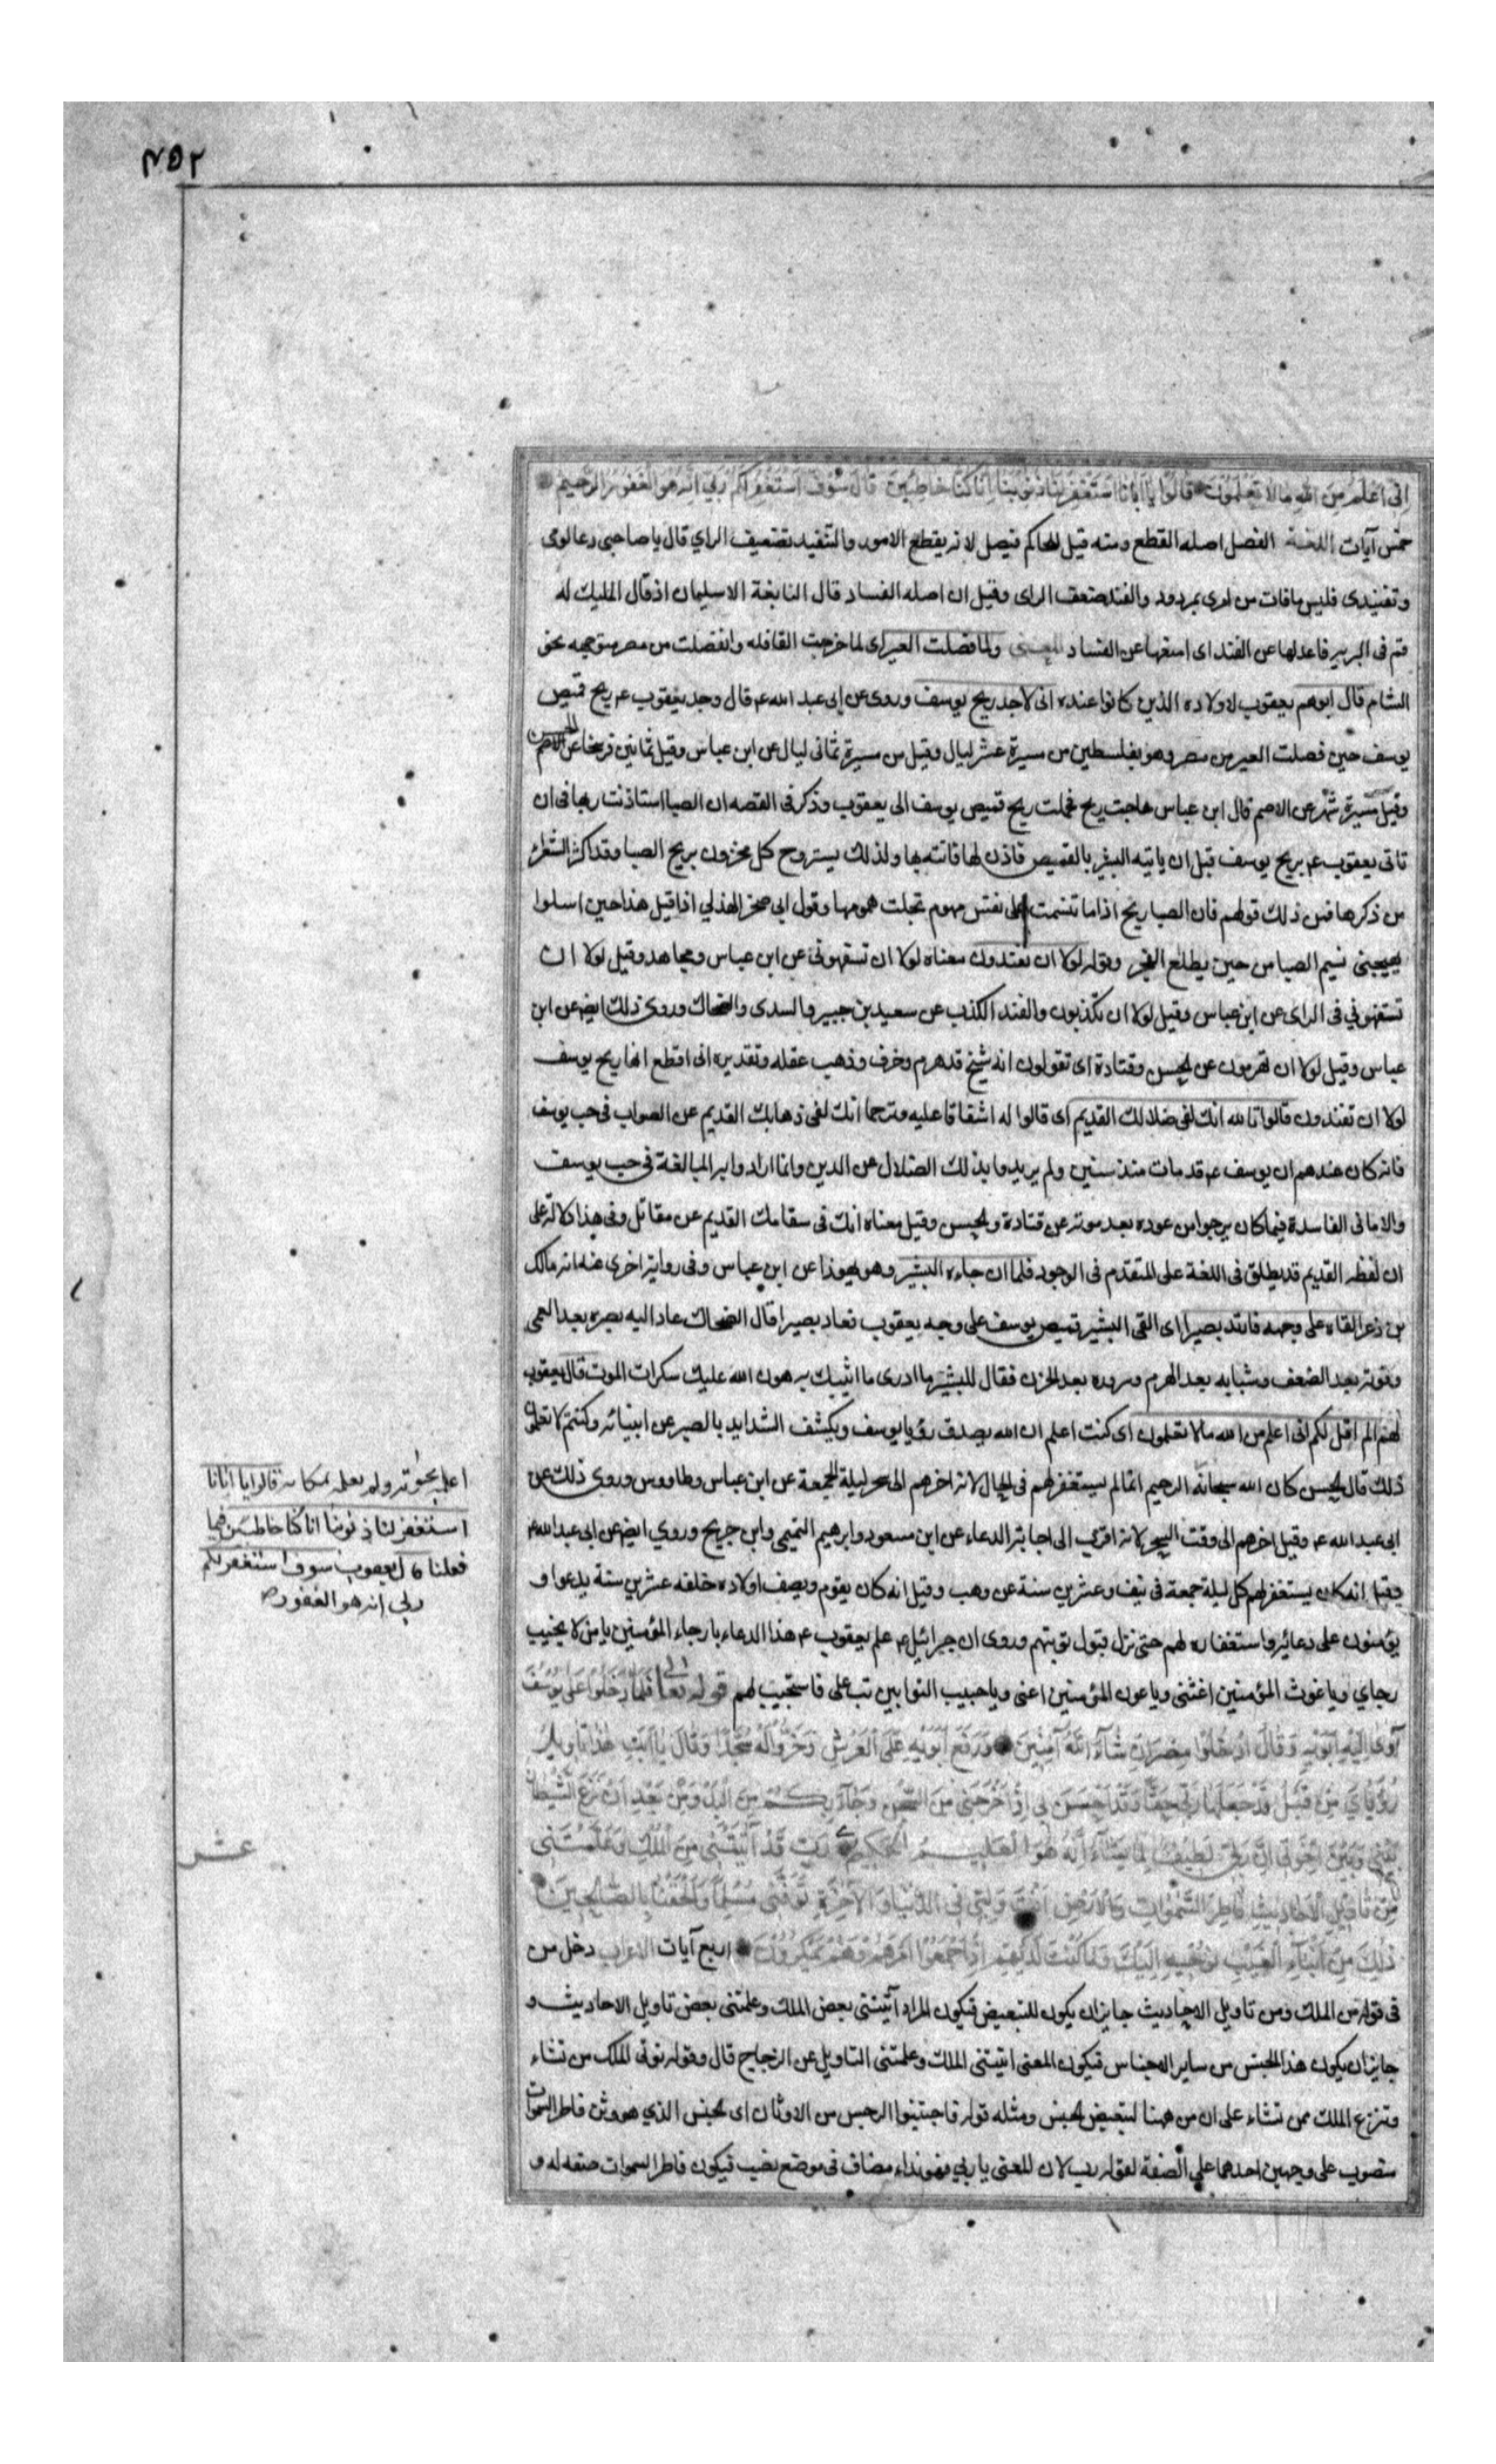 ٢٥٢
اِنّى اَعْلَمُ مِنَ اللهِ مالا تَعْلَمُونَ قالُوا يا اَبانَا اسْتَغْفِرْ لَنا ذُنُوبَنا اِنّا كُنّا خاطِئينَ قالَ سَوْفَ اَسْتَغْفِرُ لَكُمْ رَبّى اِنَّه هو الْغَفُورُ الرَّحيمُ
خمس آيات اللغة الفصل اصله القطع ومنه قيل للحاكم فيصل لانه يقطع الامور والتفنيد تضعيف الراي قال يا صاحبي دعا لومى
وتفنيدى فليس مافات من امرى بمردود والفند ضعف الراى وقيل ان اصله الفساد قال النابغة الا سليمان اذ قال المليك له
قم فى البريه فاعدلها عن الفند اى امنعها عن الفساد المعنى ولما فصلت العير اى لما خرجت القافله وانفصلت من مصر متوجهه نحو
الشام قال ابوهم يعقوب لاولاده الذين كانوا عنده انى لاجد ريح يوسف وروى عن ابى عبد الله ع قال وجد يعقوب ع ريح قميص
يوسف حين فصلت العير من مصر وهو بفلسطين من مسيرة عشر ليال وقيل من مسيرة ثمانى ليال عن ابن عباس وقيل ثمانين فرسخا عن الحسن
وقيل مسيرة شهر عن الاصم قال ابن عباس هاجت ريح فحملت ريح قميص يوسف الى يعقوب وذكر فى القصه ان الصبا استاذنت ربها فى ان
تاتى يعقوب ع بريح يوسف قبل ان ياتيه البشير بالقميص فاذن لها فاتته بها ولذلك يستروح كل محزون بريح الصبا وقد اكثر الشعراء
من ذكرها فمن ذلك قولهم فان الصبا ريح اذا ما تنسمت على نفس مهموم تجلت همومها وقول ابى صخر الهذلي اذا قيل هذا حين اسلوا
يهيجنى نسيم الصبا من حين يطلع الفجر وقوله لولا ان تفندون معناه لولا ان تسفهونى عن ابن عباس ومجاهد وقيل لولا ان
تستضعفوني فى الراى عن ابن عباس وقيل لولا ان تكذبون والفند الكذب عن سعيد بن جبير والسدى والضحاك وروى ذلك ايضا عن ابن
عباس وقيل لولا ان تهرمون عن الحسن وقتادة اى تقولون انه شيخ قد هرم وخرف وذهب عقله وتقديره انى اقطع انها ريح يوسف
لولا ان تفندون قالوا تالله انك لفى ضلالك القديم اى قالوا له اشفاقا عليه وترحما انك لفى ذهابك القديم عن الصواب فى حب يوسف
فانه كان عندهم ان يوسف ع قد مات منذ سنين ولم يريدوا بذلك الضلال عن الدين وانما ارادوا به المبالغة فى حب يوسف
والامانى الفاسدة فيما كان يرجوا من عوده بعد موته عن قتادة والحسن وقيل معناه انك فى شقائك القديم عن مقاتل وفى هذا دلالة على
ان لفظه القديم قد يطلق فى اللغة على المتقدم فى الوجود فلما ان جاءه البشير وهو يهوذا عن ابن عباس وفى رواية اخرى عنه انه مالك
بن ذعر القاه على وجهه فارتد بصيرا اى القى البشير قميص يوسف على وجه يعقوب فعاد بصيرا قال الضحاك عاد اليه بصره بعد العمى
وقوته بعد الضعف وشبابه بعد الهرم وسروره بعد الحزن فقال للبشير ما ادرى ما اثيبك به هون الله عليك سكرات الموت قال يعقوب
لهم الم اقل لكم انى اعلم من الله مالا تعلمون اى كنت اعلم ان الله يصدق رؤيا يوسف ويكشف الشدايد بالصبر عن انبيائه وكنتم لا تعلمون
ذلك قال الحسن كان الله سبحانه الرحيم انما لم يستغفر لهم فى الحال لانه اخرهم الى سحر ليلة الجمعة عن ابن عباس وطاووس وروى ذلك عن
ابى عبد الله ع وقيل اخرهم الى وقت السحر لانه اقرب الى اجابة الدعاء عن ابن مسعود وابرهيم التيمى وابن جريح وروي ايضا عن ابى عبد الله ع
وقيل انه كان يستغفر لهم كل ليلة جمعة فى نيف وعشرين سنة عن وهب وقيل انه كان يقوم ويصف اولاده خلفه عشرين سنة يدعوا و
يؤمنون على دعائه واستغفاره لهم حتى نزل قبول توبتهم وروى ان جبرائيل ع علم يعقوب ع هذا الدعاء يا رجاء المؤمنين يا من لا يخيب
رجاي ويا غوث المؤمنين اغثنى ويا عون المؤمنين اعنى ويا حبيب التوابين تب على فاستجيب لهم قوله تعالى فَلَمّا دَخَلُوا عَلى يُوسُفَ
آوى اِلَيْهِ اَبَوَيْهِ وَقالَ ادْخُلُوا مِصْرَ اِنْ شآءَ اللهُ آمِنينَ وَرَفَعَ اَبَوَيْهِ عَلَى الْعَرْشِ وَخَرُّوا لَهُ سُجَّدًا وَقالَ يا اَبَتِ هذا تَاْويلُ
رُؤْيايَ مِنْ قَبْلُ قَدْ جَعَلَها رَبّى حَقًّا وَقَدْ اَحْسَنَ بى اِذْ اَخْرَجَنى مِنَ السِّجْنِ وَجآءَ بِكُمْ مِنَ الْبَدْوِ مِنْ بَعْدِ اَنْ نَزَغَ الشَّيْطانُ
بَيْنى وَبَيْنَ اِخْوَتى اِنَّ رَبّى لَطيفٌ لِما يَشآءُ اِنَّهُ هُوَ الْعَليمُ الْحَكيمُ رَبِّ قَدْ آتَيْتَنى مِنَ الْمُلْكِ وَعَلَّمْتَنى
مِنْ تَاْويلِ الْاَحاديثِ فاطِرَ السَّمواتِ وَالْاَرْضِ اَنْتَ وَلِيّى فِى الدُّنْيا وَالْآخِرَةِ تَوَفَّنى مُسْلِمًا وَاَلْحِقْنى بِالصّالِحينَ
ذلِكَ مِنْ اَنْبآءِ الْغَيْبِ نُوحيهِ اِلَيْكَ وَما كُنْتَ لَدَيْهِمْ اِذْ اَجْمَعُوا اَمْرَهُمْ وَهُمْ يَمْكُرُونَ اربع آيات الاعراب دخل من
فى قوله من الملك ومن تاويل الاحاديث جايز ان يكون للتبعيض فيكون المراد آتيتنى بعض الملك وعلمتنى بعض تاويل الاحاديث و
جايز ان يكون هذا الجنس من ساير الاجناس فيكون المعنى اتيتنى الملك وعلمتنى التاويل عن الزجاج قال وقوله توتى الملك من تشاء
وتنزع الملك ممن تشاء على ان من ههنا لتبعيض الجنس ومثله قوله فاجتنبوا الرجس من الاوثان اى الجنس الذي هو وثن فاطر السموات
منصوب على وجهين احدهما على الصفة لقوله رب لان المعنى يا ربي فهو نداء مضاف فى موضع نصب فيكون فاطر السموات صفه له و
اعلم بحيوته ولم يعلمه بمكانه قالوا يا ابانا
استغفر لنا ذنوبنا انا كنا خاطئين فيما
فعلنا قال يعقوب سوف استغفر لكم
ربي انه هو الغفور
عشر